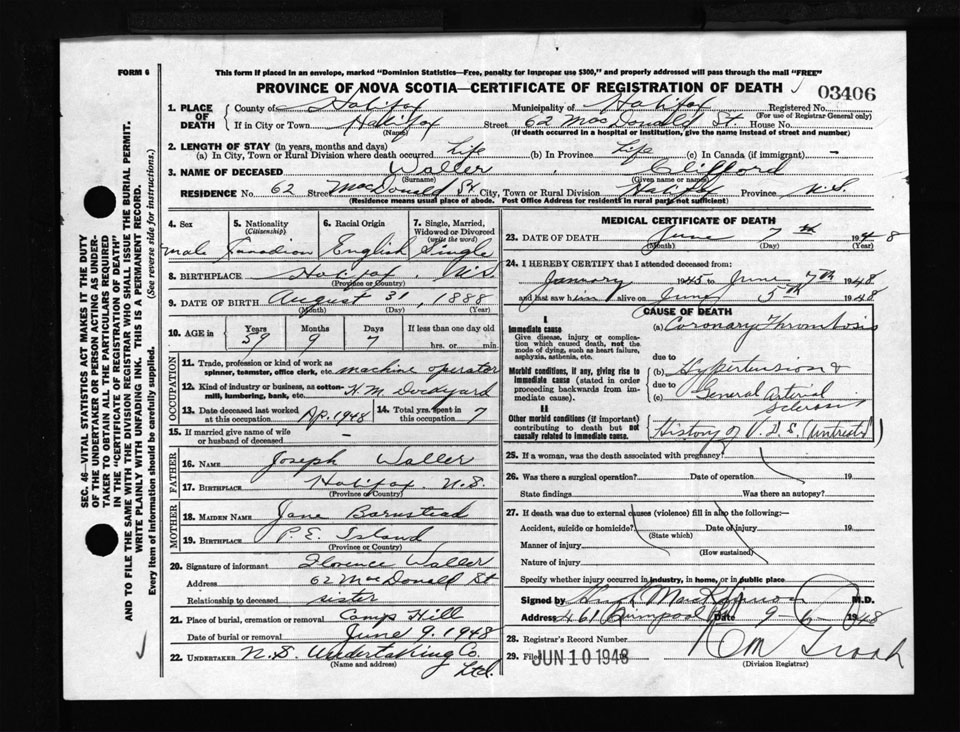 FORM 6
This form if placed in an envelope, marked "Dominion Statistics—Free, penalty for improper use $300," and properly addressed will pass through the mail "FREE"
PROVINCE OF NOVA SCOTIA—CERTIFICATE OF REGISTRATION OF DEATH
03406
SEC. 46—VITAL STATISTICS ACT MAKES IT THE DUTY
OF THE UNDERTAKER OR PERSON ACTING AS UNDER-
TAKER TO OBTAIN ALL THE PARTICULARS REQUIRED
IN THE "CERTIFICATE OF REGISTRATION OF DEATH"
AND TO FILE THE SAME WITH THE DIVISION REGISTRAR WHO SHALL ISSUE THE BURIAL PERMIT.
WRITE PLAINLY WITH UNFADING INK. THIS IS A PERMANENT RECORD.
Every item of information should be carefully supplied. (See reverse side for instructions.)
1. PLACE OF DEATH
County of Halifax Municipality of Halifax Registered No.
(For use of Registrar General only)
If in City or Town Halifax Street 62 MacDonald St. House No.
(Name) (If death occurred in a hospital or institution, give the name instead of street and number)
2. LENGTH OF STAY (in years, months and days)
(a) In City, Town or Rural Division where death occurred Life (b) In Province Life (c) In Canada (if immigrant) —
3. NAME OF DECEASED Waller Clifford
(Surname) (Given name or names)
RESIDENCE No. 62 Street MacDonald St. City, Town or Rural Division Halifax Province N.S.
(Residence means usual place of abode. Post Office Address for residents in rural parts not sufficient)
4. Sex 5. Nationality (Citizenship) 6. Racial Origin 7. Single, Married, Widowed or Divorced (write the word)
male Canadian English Single
8. BIRTHPLACE Halifax N.S.
(Province or Country)
9. DATE OF BIRTH August 31, 1888
(Month) (Day) (Year)
10. AGE in Years Months Days If less than one day old
59 9 7 hrs. or min.
OCCUPATION
11. Trade, profession or kind of work as spinner, teamster, office clerk, etc. machine operator
12. Kind of industry or business, as cotton-mill, lumbering, bank, etc. H.M. Dockyard
13. Date deceased last worked at this occupation Ap. 1948 14. Total yrs. spent in this occupation 7
15. If married give name of wife or husband of deceased —
FATHER
16. NAME Joseph Waller
17. BIRTHPLACE Halifax N.S.
(Province or Country)
MOTHER
18. MAIDEN NAME Jane Barnstead
19. BIRTHPLACE P.E. Island
(Province or Country)
20. Signature of informant Florence Waller
Address 62 MacDonald St
Relationship to deceased sister
21. Place of burial, cremation or removal Camp Hill
Date of burial or removal June 9, 1948
22. UNDERTAKER N.S. Undertaking Co. Ltd.
(Name and address)
MEDICAL CERTIFICATE OF DEATH
23. DATE OF DEATH June 7th 1948
(Month) (Day) (Year)
24. I HEREBY CERTIFY that I attended deceased from:
January 1945 to June 7th 1948
and last saw him alive on June 5th 1948
CAUSE OF DEATH
I
Immediate cause
Give disease, injury or complication which caused death, not the mode of dying, such as heart failure, asphyxia, asthenia, etc.
(a) Coronary Thrombosis
due to
Morbid conditions, if any, giving rise to immediate cause (stated in order proceeding backwards from immediate cause).
(b) Hypertension &
due to
(c) General arterial sclerosis
II
Other morbid conditions (if important) contributing to death but not causally related to immediate cause.
History of V.D.S.
25. If a woman, was the death associated with pregnancy?
26. Was there a surgical operation? Date of operation 19
State findings Was there an autopsy?
27. If death was due to external causes (violence) fill in also the following:—
Accident, suicide or homicide? Date of injury 19
(State which)
Manner of injury
(How sustained)
Nature of injury
Specify whether injury occurred in industry, in home, or in public place
Signed by Hugh M.D.
Address 461 Date 9 6 1948
28. Registrar's Record Number
29. Filed JUN 10 1948
(Division Registrar)